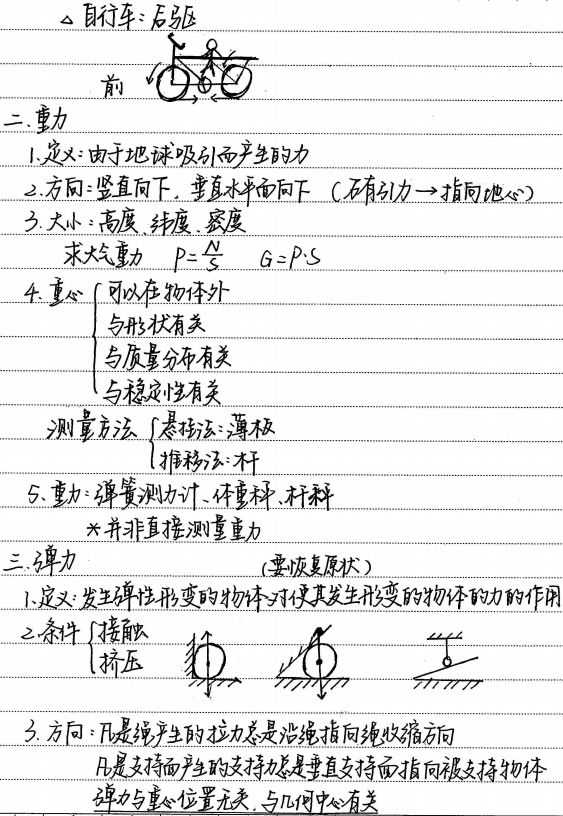 △自行车:后驱
前
二.重力
1.定义:由于地球吸引而产生的力
2.方向:竖直向下,垂直水平面向下 (万有引力→指向地心)
3.大小:高度、纬度、密度
求大气重力 P=N/S G=P·S
4.重心 { 可以在物体外
与形状有关
与质量分布有关
与稳定性有关
测量方法 { 悬挂法:薄板
推移法:杆
5.重力:弹簧测力计、体重秤、杆秤
*并非直接测量重力
三.弹力 (要恢复原状)
1.定义:发生弹性形变的物体对使其发生形变的物体的力的作用
2.条件 { 接触
挤压
3.方向:凡是绳产生的拉力总是沿绳指向绳收缩方向
凡是支持面产生的支持力总是垂直支持面指向被支持物体
弹力与重心位置无关,与几何中心有关